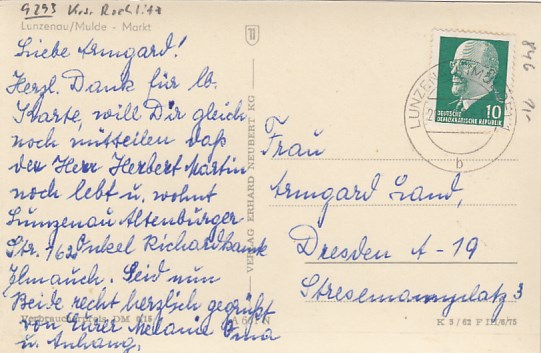 9293 Krs. Rochlitz
Lunzenau/Mulde - Markt
Liebe Irmgard!
Herzl. Dank für lb.
Karte, will Dir gleich
noch mitteilen daß
der Herr Herbert Martin
noch lebt u. wohnt
Lunzenau Altenburger
Str. 163 Onkel Richard krank
Ilm auch. Seid nun
Beide recht herzlich gegrüßt
von Eurer Melanie Oma
u. Anhang.
Verbraucherpreis DM 0,15
VERLAG ERHARD NEUBERT KG
846
LUNZENAU
b
10
DEUTSCHE
DEMOKRATISCHE REPUBLIK
Frau
Irmgard Land,
Dresden A-19
Stresemannplatz 3